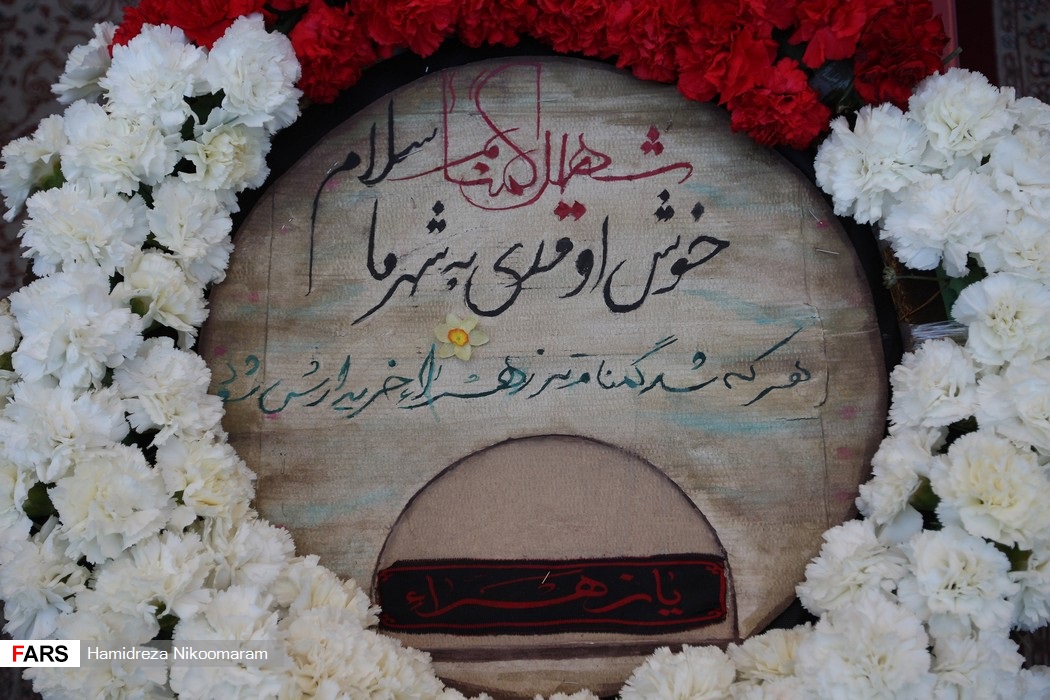 شهید گمنام سلام
خوش اومدی به شهر ما
هر که شد گمنام تر زهراء خریدارش شود
یا زهراء
FARS Hamidreza Nikoomaram